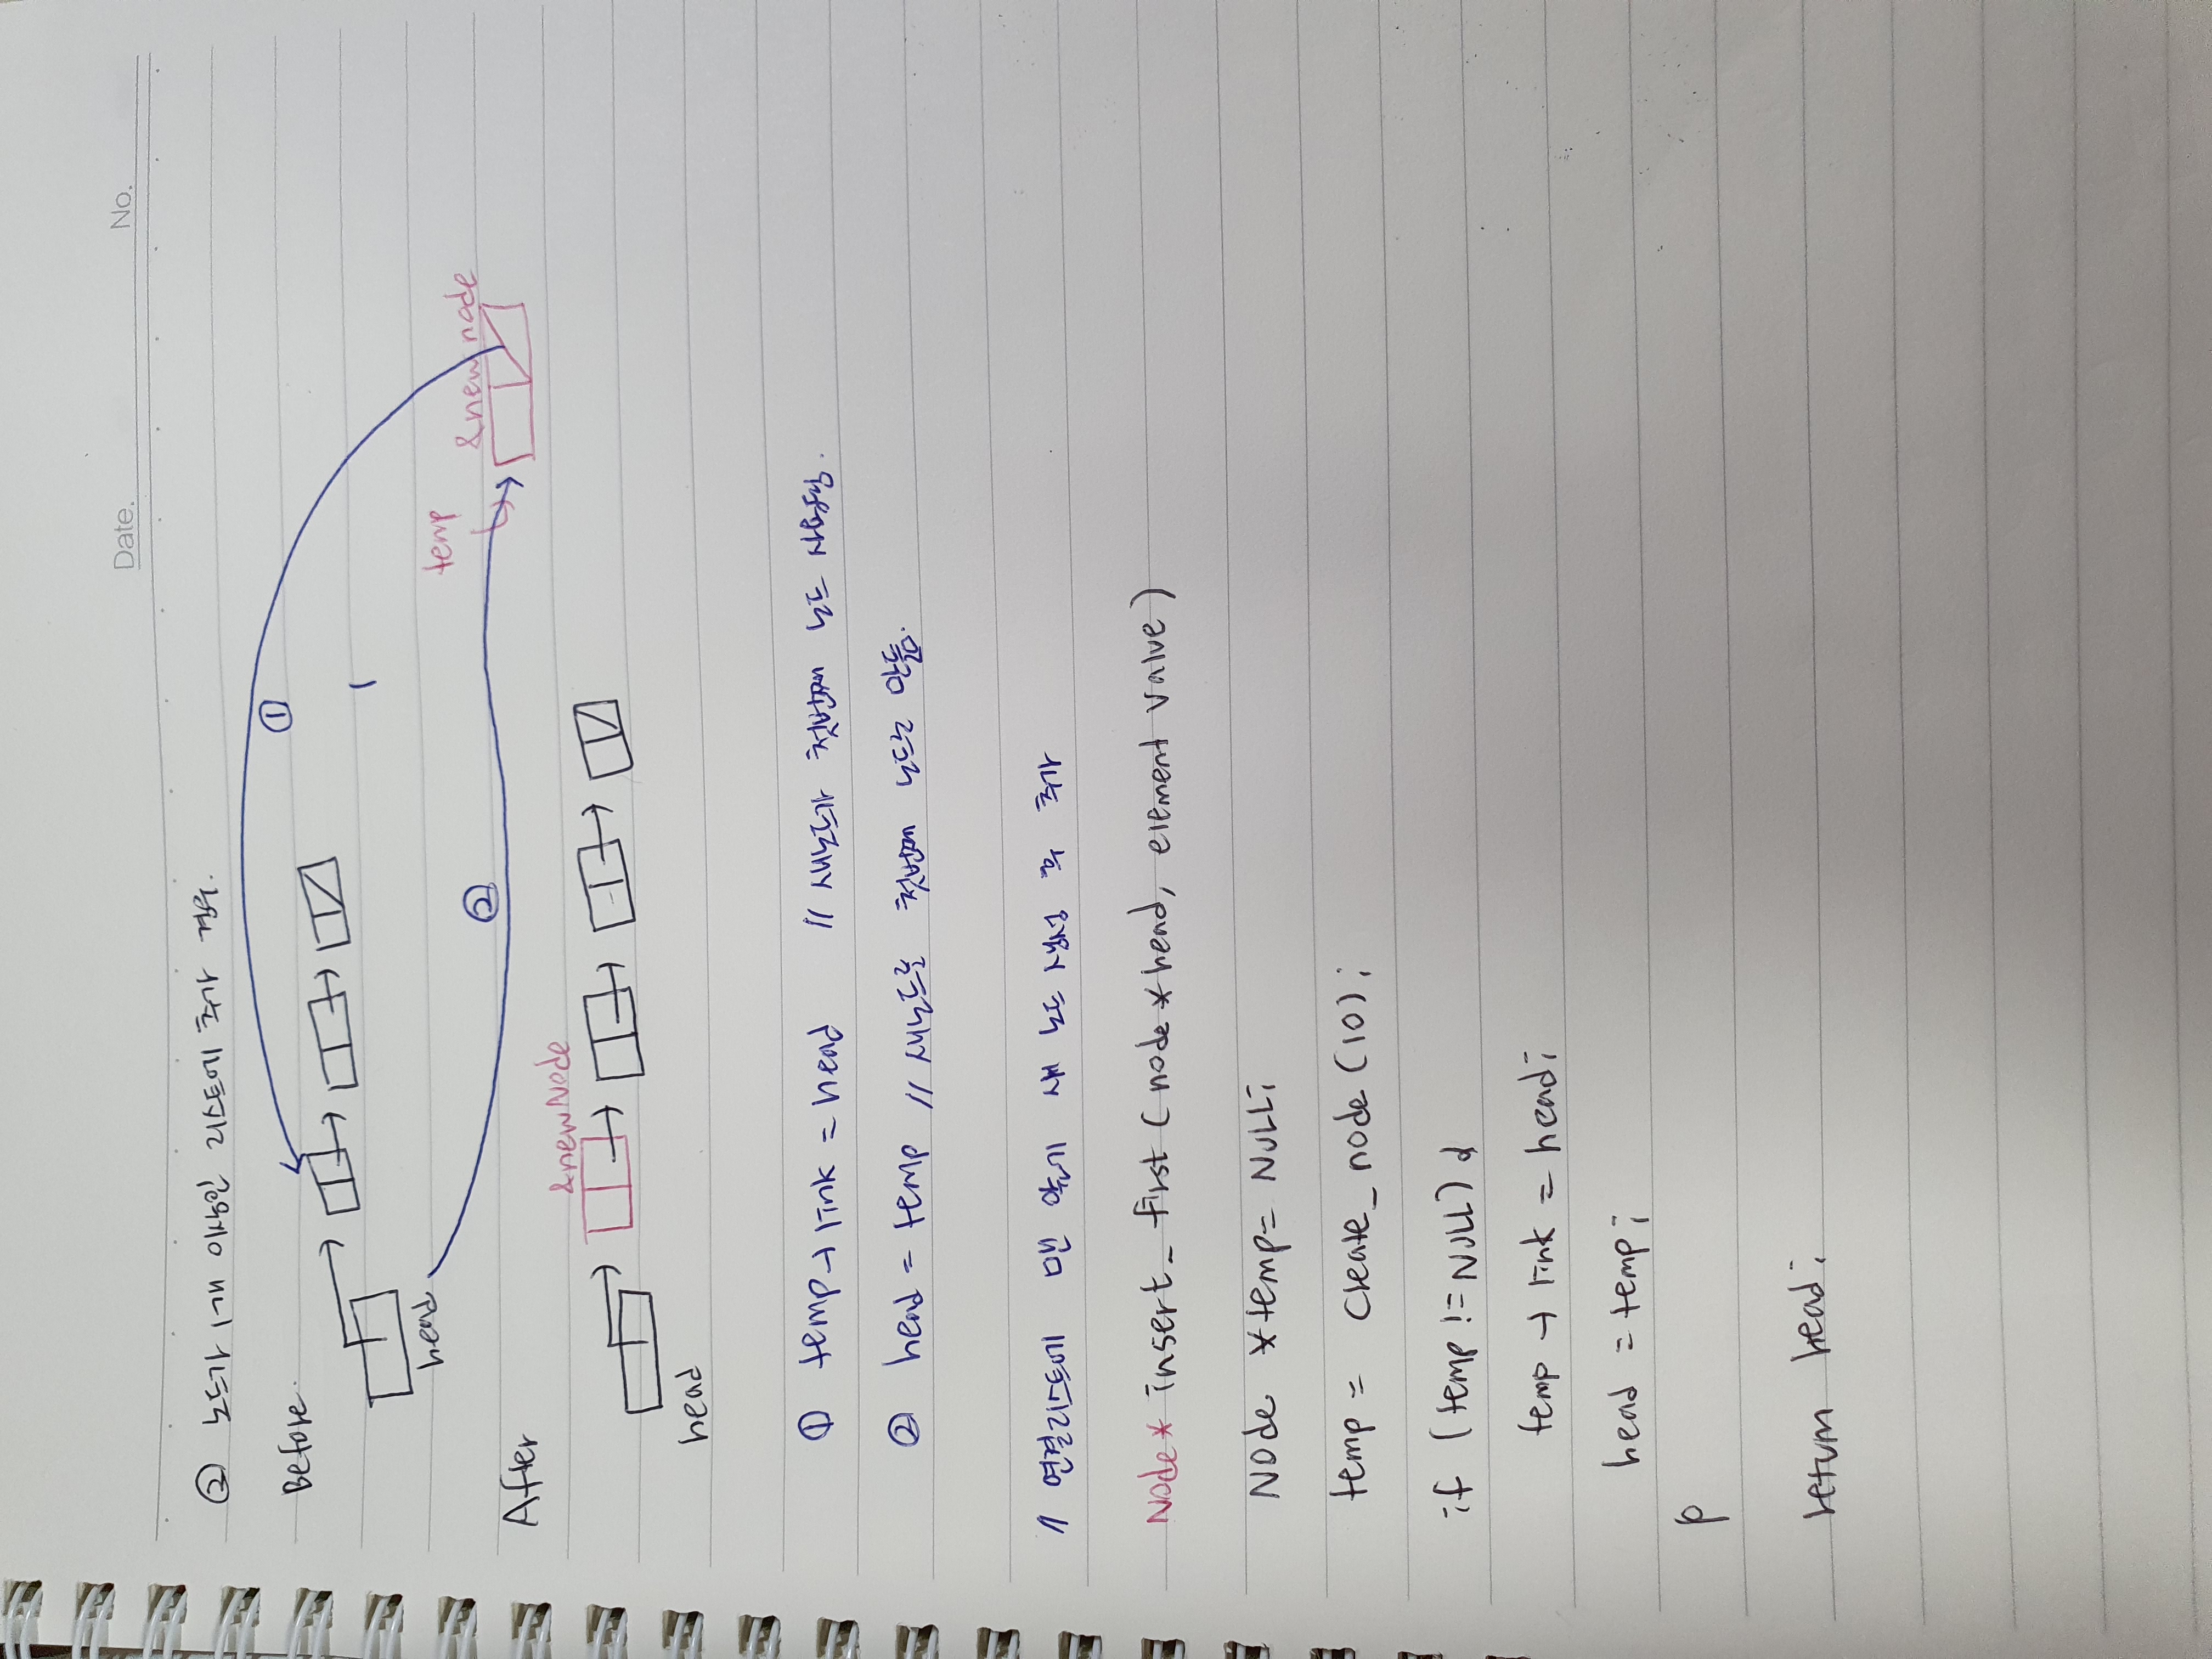 Date. No.
② 노드가 1개 이상인 리스트에 추가 경우.
Before.
①
head
temp
&new node
②
After
&newNode
head
① temp → link = head // 새노드가 첫번째 노드
② head = temp // 새노드로 첫번째 노드로 만듦.
// 연결리스트에 맨 앞에 새 노드 생성 후 추가
Node* insert_first (node *head, element value)
Node *temp = NULL;
temp = create_node (10);
if (temp != NULL) {
temp → link = head;
head = temp;
}
return head;